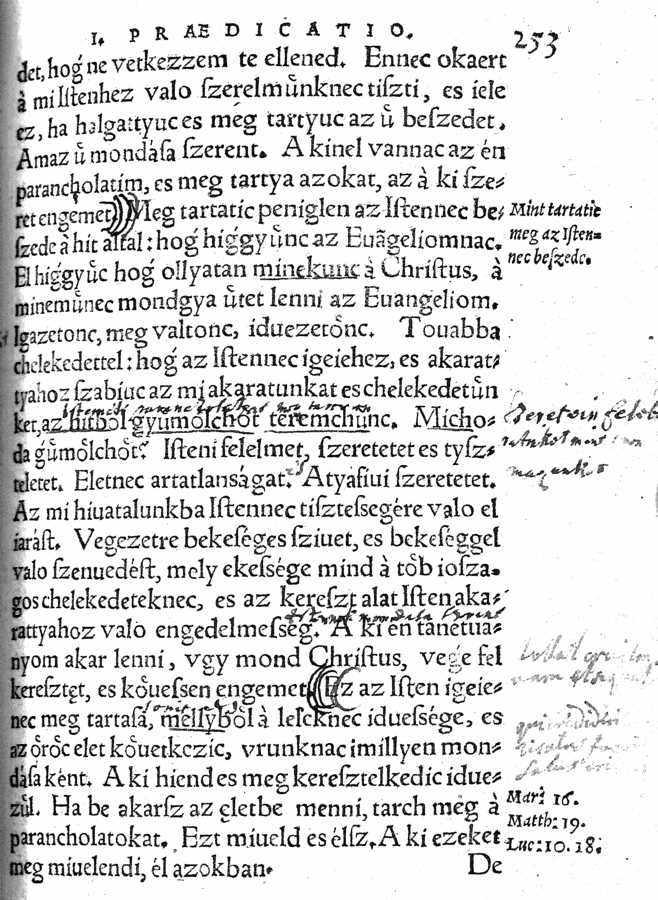 I. PRAEDICATIO. 253
det, hoǵ ne vetkezzem te ellened. Ennec okaert
à mi Iſtenhez valo ſzerelmünknec tiſzti, es iele
ez, ha halgattyuc es még tartyuc az ü beſzedet.
Amaz ü mondáſa ſzerent. A kinel vannac az én
parancholatim, es meg tartya azokat, az à ki ſze⸗
ret engemet. Meg tartatic peniglen az Iſtennec be⸗
ſzede à hit altal: hoǵ higǵyünc az Euãgeliomnac.
El higǵyüc hoǵ ollyatan minekunc à Chriſtus, à
minemünec mondgya ütet lenni az Euangeliom.
Igazetonc, meg valtonc, iduezetönc. Touabba
chelekedettel: hoǵ az Iſtennec igeiehez, es akarat⸗
tyahoz ſzabiuc az mi akaratunkat es chelekedetün
ket, az hitböl gyümölchöt teremchünc. Micho⸗
da gümölchöt? Iſteni felelmet, ſzeretetet es tyſz⸗
teletet. Eletnec artatlanságat. Atyafiui ſzeretetet.
Az mi hiuatalunkba Iſtennec tiſzteſsegére valo el
iaráſt. Vegezetre bekeſéges ſziuet, es bekeſéggel
valo ſzenuedéſt, mely ekeſsége mind à töb ioſza⸗
gos chelekedeteknec, es az kereſzt alat Iſten aka⸗
rattyahoz valo engedelmeſség. A ki én tanetua⸗
nyom akar lenni, vgy mond Chriſtus, vege fel
kereſztęt, es köueſsen engemet. Ez az Iſten igeie⸗
nec meg tartaſa, mellyböl à leleknec idueſsége, es
az öröc elet köuetkezic, vrunknac imillyen mon⸗
dáſaként. A ki hiend es meg kereſztelkedic idue⸗
zül. Ha be akarſz az ęletbe menni, tarch még à
parancholatokat. Ezt miueld es élſz. A ki ezeket
meg miuelendi, él azokban. De
Mint tartatic
meg az Iſten⸗
nec beſzede.
Mar: 16.
Matth: 19.
Luc: 10. 18.